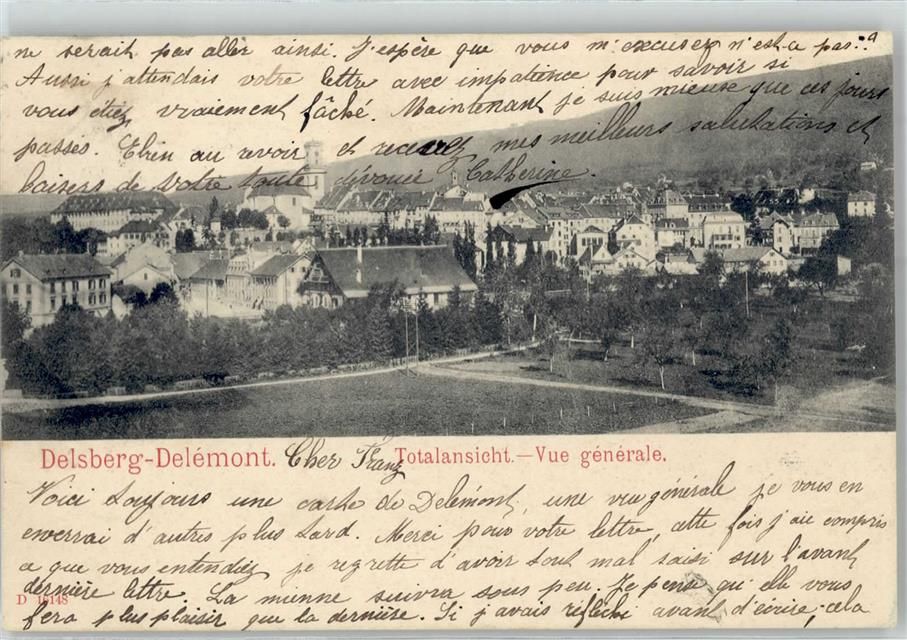 ne serait pas aller ainsi. J'espère que vous m'excusez n'est-ce pas.?
Aussi j'attendais votre lettre avec impatience pour savoir si
vous étiez vraiement fâché. Maintenant je suis mieuse que ces jours
passés. Ehien au revoir et recevez mes meilleurs salutations et
baisers de votre toute dévouée Catherine.
Delsberg-Delémont. Cher Franz Totalansicht.—Vue générale.
Voici toujours une carte de Delémont, une vue générale je vous en
enverrai d'autres plus tard. Merci pour votre lettre, cette fois j'ai compris
ce que vous entendiez je regrette d'avoir tout mal saisi sur l'avant
dernière lettre. La mienne suivra sous peu. Je pense qu'elle vous
D 16148
fera plus plaisir que la dernière. Si j'avais réfléchi avant d'écrire, cela